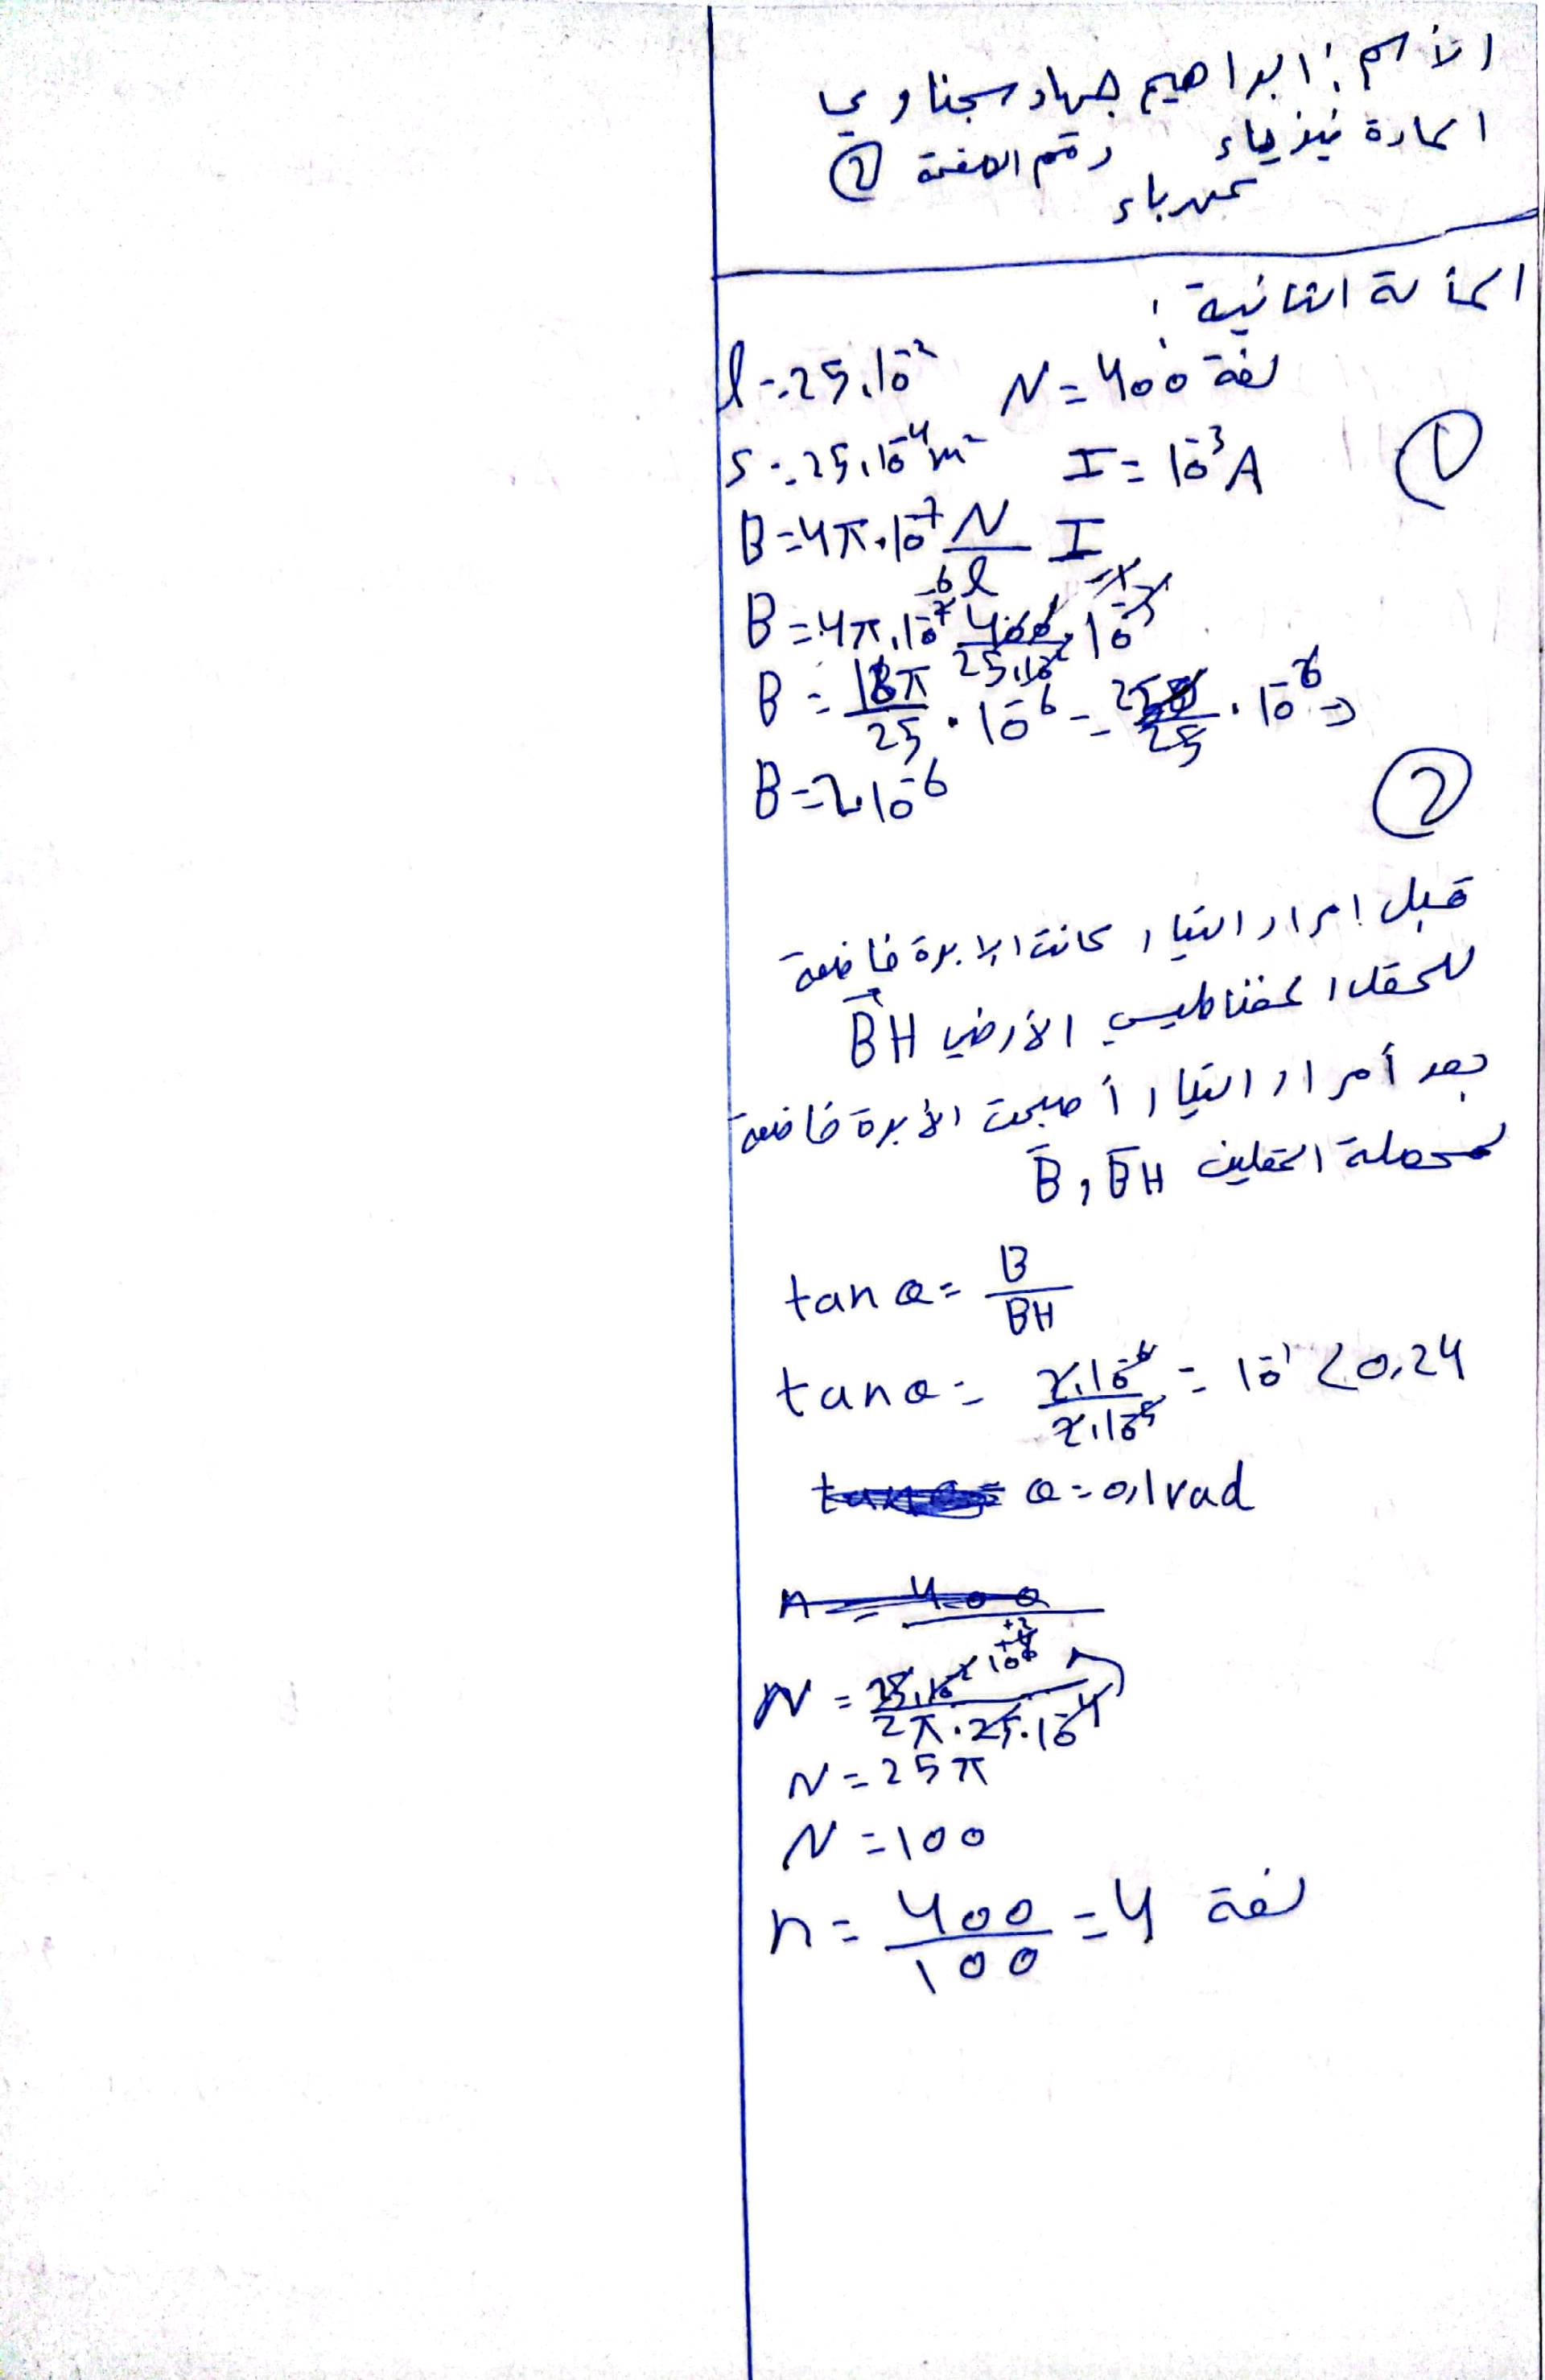 الأسم: ابراهيم جهاد سجناوي
المادة فيزياء رقم الصفحة 2
كهرباء
المسألة الثانية:
l = 25.10^-2 N = 400 لفة
S = 25.10^-4 m^2 I = 10^-3 A ①
B = 4π.10^-7 N/l I
B = 4π.10^-7 400/25.10^-2 . 10^-3
B = 16π/25 . 10^-6 = /25 . 10^-6 ⇒
B = 2.10^-6
②
قبل امرار التيار كانت الابرة خاضعة
للحقل المغناطيسي الأرضي BH
بعد أمرار التيار أصبحت الأبرة خاضعة
لمحصلة الحقلين B, BH
tan θ = B/BH
tan θ = 2.10^-6/2.10^-5 = 10^-1 < 0.24
θ = 0,1 rad
N = /2π.25.10^-4
N = 25π
N = 100
n = 400/100 = 4 لفة